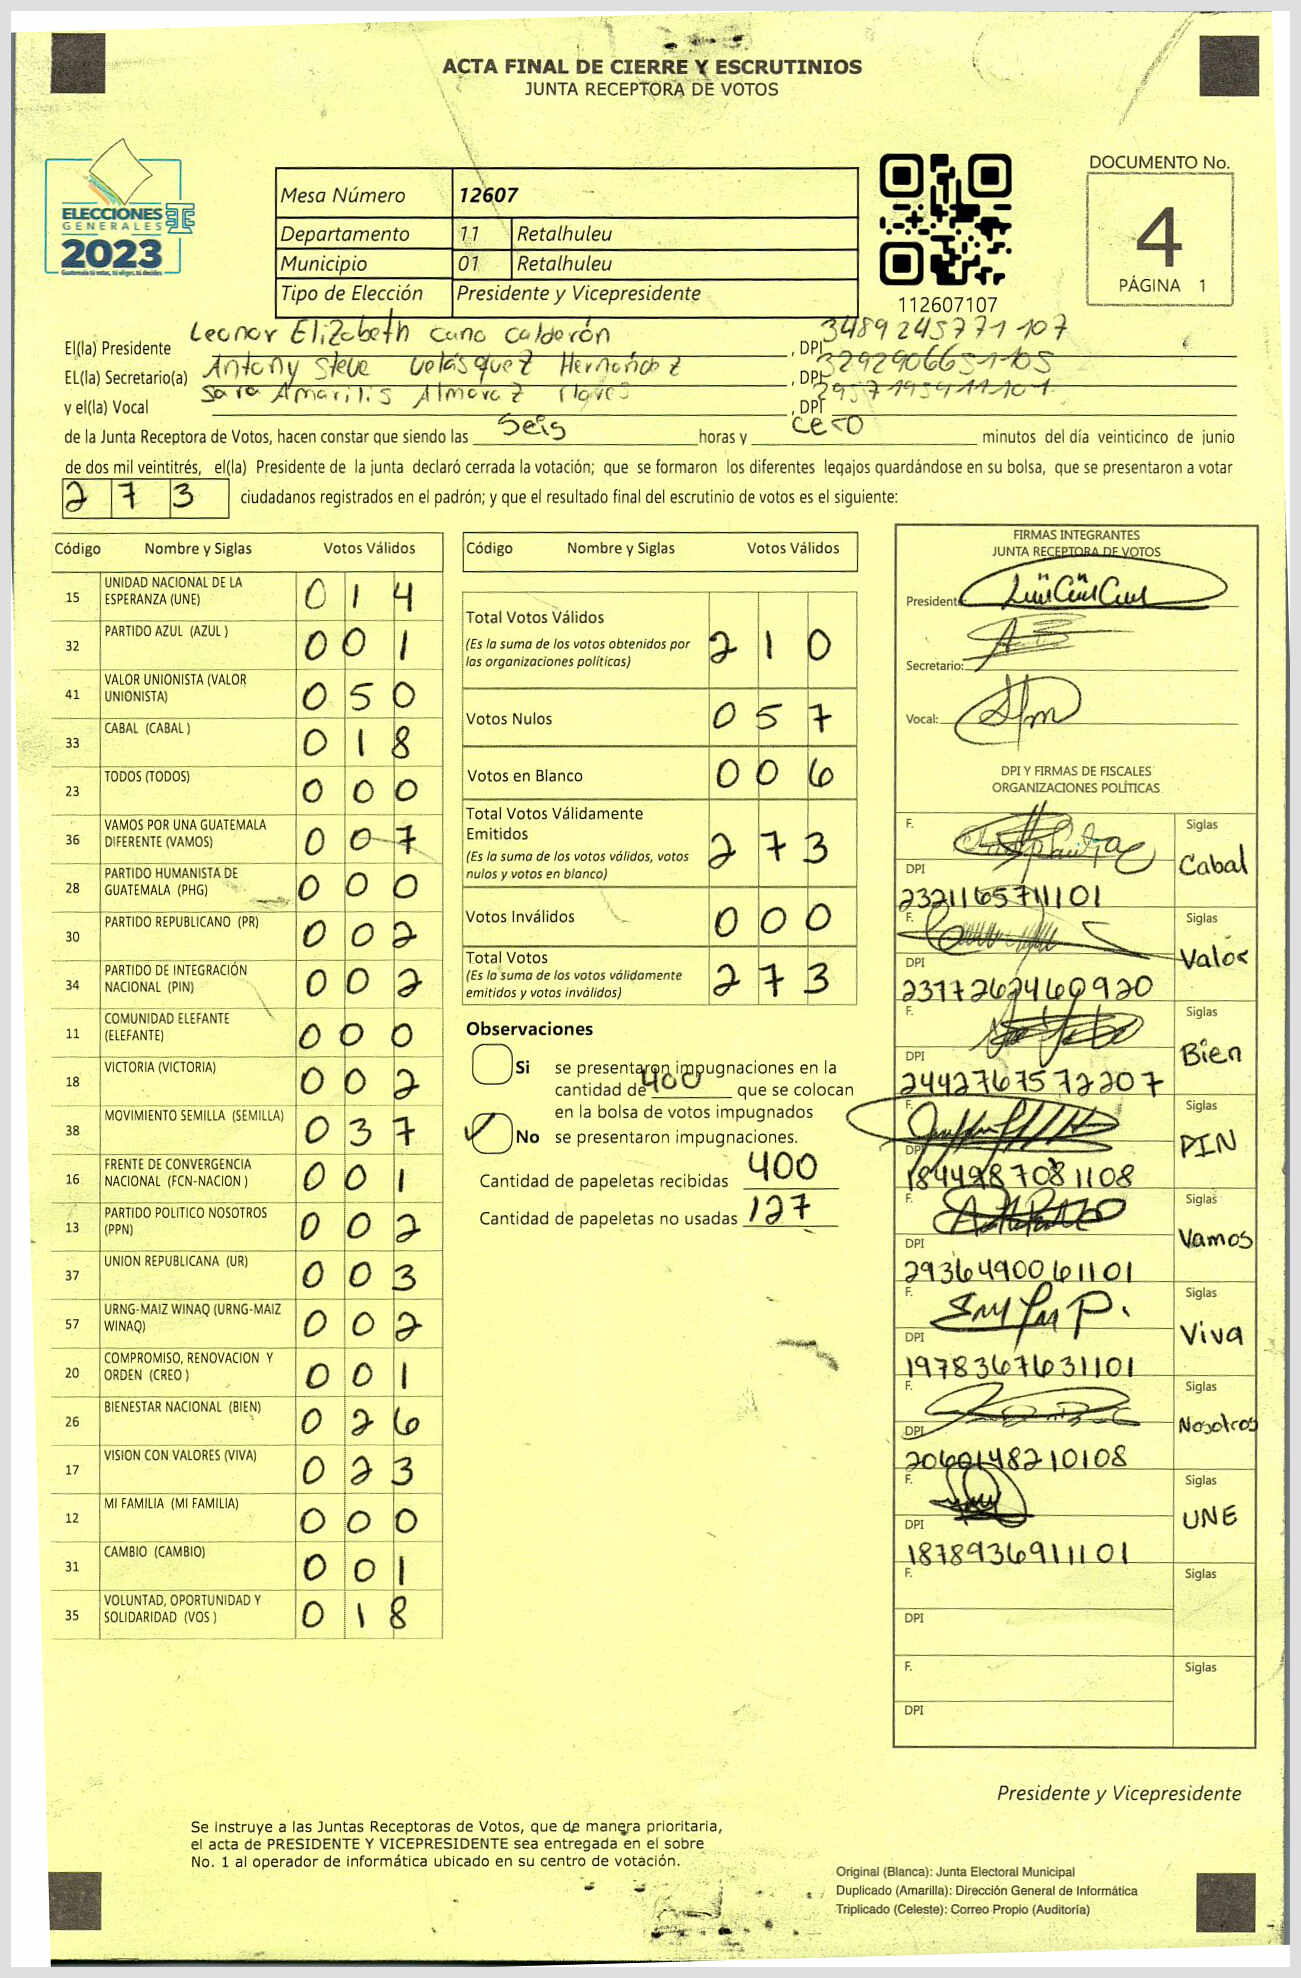 ACTA FINAL DE CIERRE Y ESCRUTINIOS
JUNTA RECEPTORA DE VOTOS
ELECCIONES
GENERALES
2023
Guatemala tú votas, tú eliges, tú decides
Mesa Número 12607
Departamento 11 Retalhuleu
Municipio 01 Retalhuleu
Tipo de Elección Presidente y Vicepresidente
112607107
DOCUMENTO No.
4
PÁGINA 1
El(la) Presidente Leonor Elizabeth Cano Calderón, DPI 3489245771107
EL(la) Secretario(a) Antony Steve Velásquez Hernández, DPI 3292906651105
y el(la) Vocal Sara Amarilis Almaraz, DPI
de la Junta Receptora de Votos, hacen constar que siendo las Seis horas y cero minutos del día veinticinco de junio
de dos mil veintitrés, el(la) Presidente de la junta declaró cerrada la votación; que se formaron los diferentes legajos quardándose en su bolsa, que se presentaron a votar
273 ciudadanos registrados en el padrón; y que el resultado final del escrutinio de votos es el siguiente:
Código Nombre y Siglas Votos Válidos
15 UNIDAD NACIONAL DE LA ESPERANZA (UNE) 014
32 PARTIDO AZUL (AZUL ) 001
41 VALOR UNIONISTA (VALOR UNIONISTA) 050
33 CABAL (CABAL ) 018
23 TODOS (TODOS) 000
36 VAMOS POR UNA GUATEMALA DIFERENTE (VAMOS) 007
28 PARTIDO HUMANISTA DE GUATEMALA (PHG) 000
30 PARTIDO REPUBLICANO (PR) 002
34 PARTIDO DE INTEGRACIÓN NACIONAL (PIN) 002
11 COMUNIDAD ELEFANTE (ELEFANTE) 000
18 VICTORIA (VICTORIA) 002
38 MOVIMIENTO SEMILLA (SEMILLA) 037
16 FRENTE DE CONVERGENCIA NACIONAL (FCN-NACION ) 001
13 PARTIDO POLITICO NOSOTROS (PPN) 002
37 UNION REPUBLICANA (UR) 003
57 URNG-MAIZ WINAQ (URNG-MAIZ WINAQ) 002
20 COMPROMISO, RENOVACION Y ORDEN (CREO ) 001
26 BIENESTAR NACIONAL (BIEN) 026
17 VISION CON VALORES (VIVA) 023
12 MI FAMILIA (MI FAMILIA) 000
31 CAMBIO (CAMBIO) 001
35 VOLUNTAD, OPORTUNIDAD Y SOLIDARIDAD (VOS ) 018
Código Nombre y Siglas Votos Válidos
Total Votos Válidos 210
(Es la suma de los votos obtenidos por
las organizaciones políticas)
Votos Nulos 057
Votos en Blanco 006
Total Votos Válidamente
Emitidos 273
(Es la suma de los votos válidos, votos
nulos y votos en blanco)
Votos Inválidos 000
Total Votos 273
(Es la suma de los votos válidamente
emitidos y votos inválidos)
Observaciones
Si se presentaron impugnaciones en la
cantidad de 400 que se colocan
en la bolsa de votos impugnados
No se presentaron impugnaciones.
Cantidad de papeletas recibidas 400
Cantidad de papeletas no usadas 127
FIRMAS INTEGRANTES
JUNTA RECEPTORA DE VOTOS
Presidente:
Secretario:
Vocal:
DPI Y FIRMAS DE FISCALES
ORGANIZACIONES POLÍTICAS
F. Siglas
Cabal
DPI
2321165711101
F. Siglas
Valor
DPI
F. Siglas
Bien
DPI
2442767572207
F. Siglas
PIN
DPI
1844987081108
F. Siglas
Vamos
DPI
2936490061101
F. Siglas
Viva
DPI
1978367631101
F. Siglas
Nosotros
DPI
2060148210108
F. Siglas
UNE
DPI
1878936911101
F. Siglas
DPI
F. Siglas
DPI
Presidente y Vicepresidente
Se instruye a las Juntas Receptoras de Votos, que de manera prioritaria,
el acta de PRESIDENTE Y VICEPRESIDENTE sea entregada en el sobre
No. 1 al operador de informática ubicado en su centro de votación.
Original (Blanca): Junta Electoral Municipal
Duplicado (Amarilla): Dirección General de Informática
Triplicado (Celeste): Correo Propio (Auditoría)